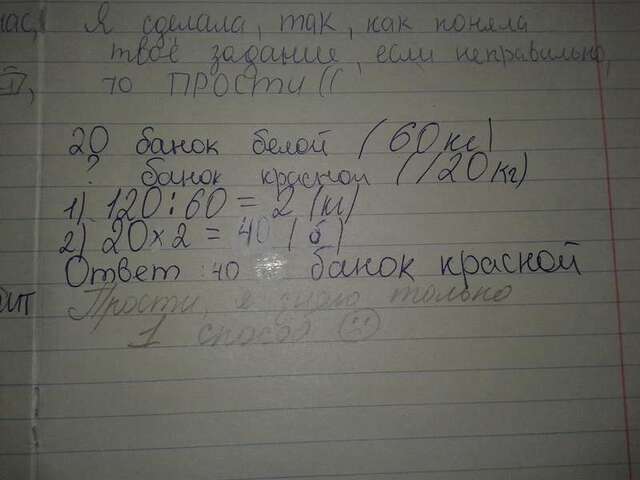 Я сделала, так, как поняла
твоё задание, если неправильно,
то ПРОСТИ ((
20 банок белой (60кг)
? банок красной (120кг)
1) 120:60 = 2 (кг)
2) 20x2 = 40 (б)
Ответ :40 банок красной
Прости, я знаю только
1 способ